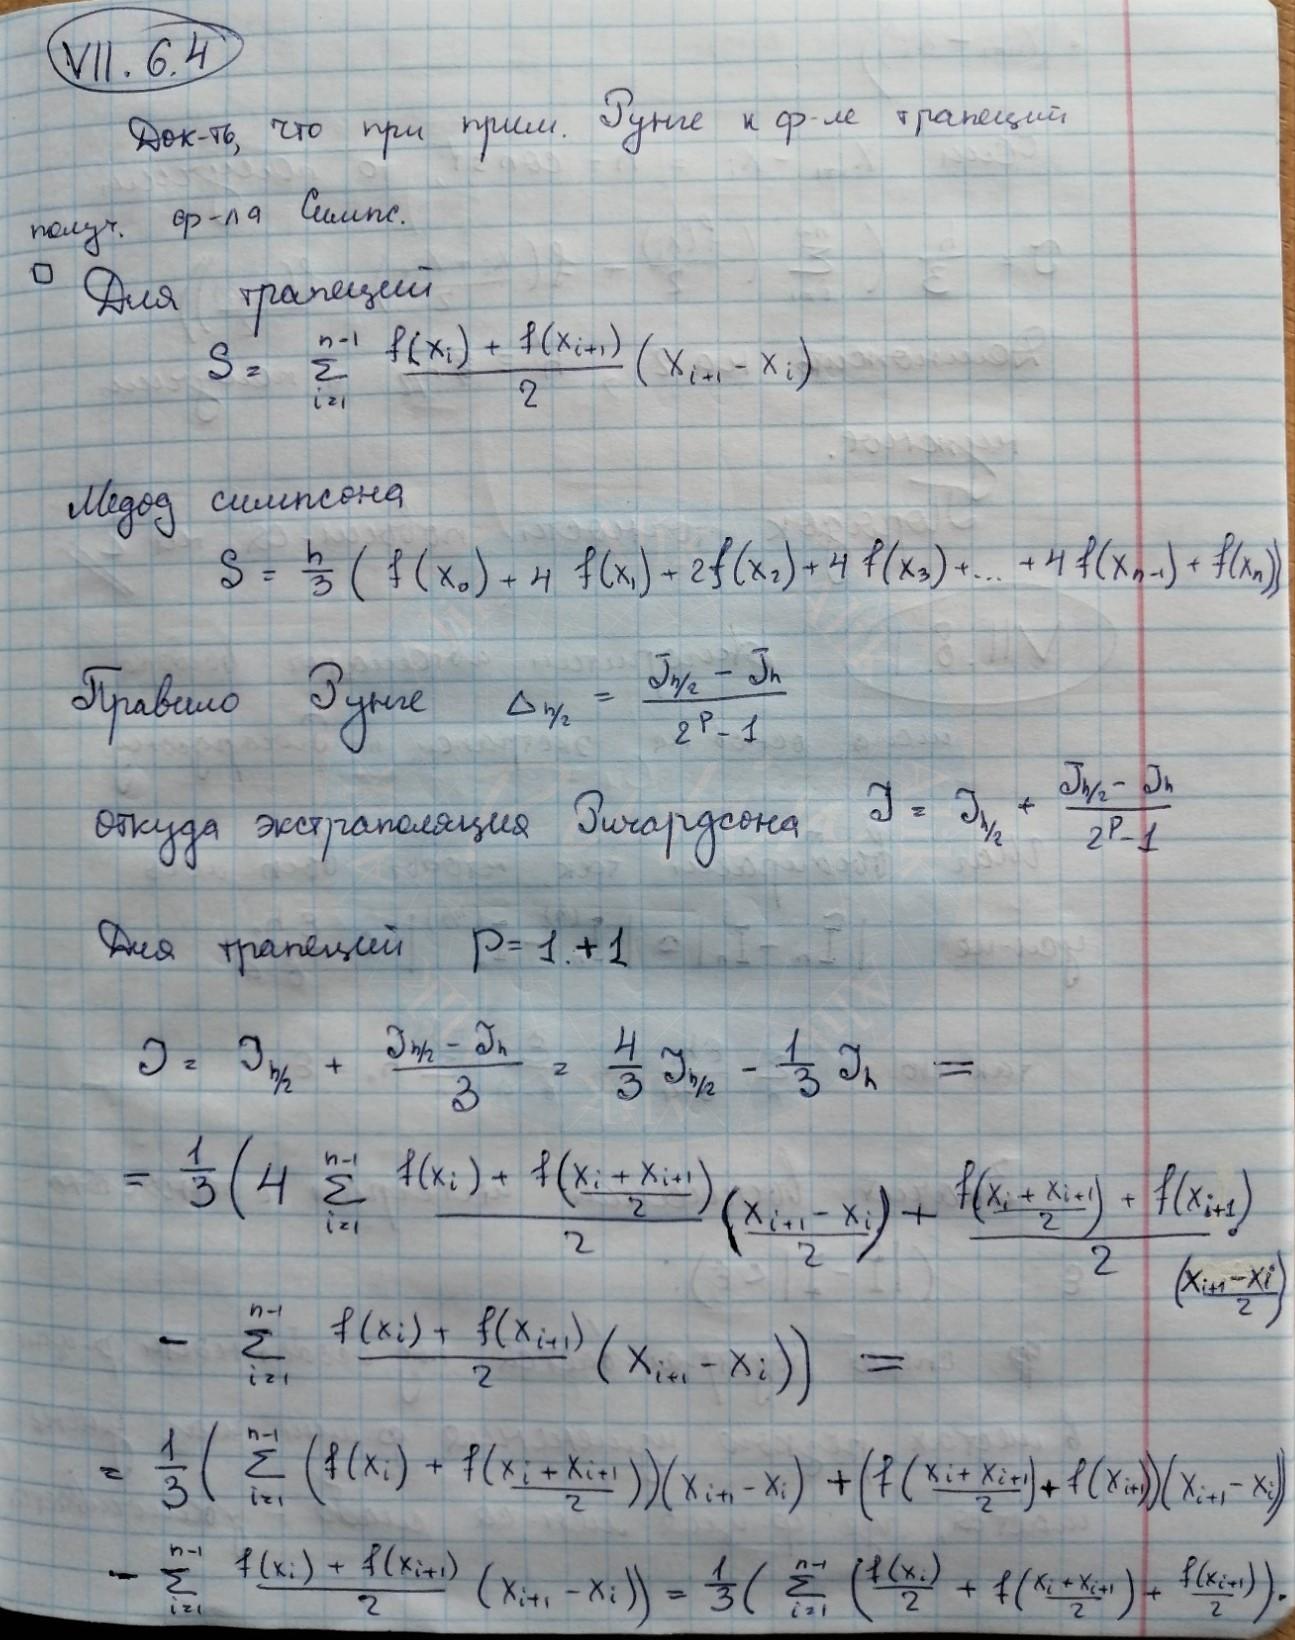 VII. 6.4
Док-ть, что при прим. Рунге к ф-ле трапеций
получ. ф-ла Симпс.
□ Для трапеций
S = \sum_{i=1}^{n-1} \frac{f(x_i) + f(x_{i+1})}{2} (x_{i+1} - x_i)
Медод симпсона
S = \frac{h}{3} ( f(x_0) + 4 f(x_1) + 2f(x_2) + 4 f(x_3) + ... + 4 f(x_{n-1}) + f(x_n))
Правило Рунге Δ_{h/2} = \frac{J_{h/2} - J_h}{2^p - 1}
откуда экстраполяция Ричардсона J = J_{h/2} + \frac{J_{h/2} - J_h}{2^p - 1}
Для трапеций p = 1 + 1
J = J_{h/2} + \frac{J_{h/2} - J_h}{3} = \frac{4}{3} J_{h/2} - \frac{1}{3} J_h =
= \frac{1}{3} ( 4 \sum_{i=1}^{n-1} \frac{f(x_i) + f(\frac{x_i + x_{i+1}}{2})}{2} (\frac{x_{i+1} - x_i}{2}) + \frac{f(\frac{x_i + x_{i+1}}{2}) + f(x_{i+1})}{2} ·
(\frac{x_{i+1} - x_i}{2})
- \sum_{i=1}^{n-1} \frac{f(x_i) + f(x_{i+1})}{2} (x_{i+1} - x_i)) =
= \frac{1}{3} ( \sum_{i=1}^{n-1} (f(x_i) + f(\frac{x_i + x_{i+1}}{2}))(x_{i+1} - x_i) + (f(\frac{x_i + x_{i+1}}{2}) + f(x_{i+1}))(x_{i+1} - x_i))
- \sum_{i=1}^{n-1} \frac{f(x_i) + f(x_{i+1})}{2} (x_{i+1} - x_i)) = \frac{1}{3} ( \sum_{i=1}^{n-1} (\frac{f(x_i)}{2} + f(\frac{x_i + x_{i+1}}{2}) + \frac{f(x_{i+1})}{2}) ·